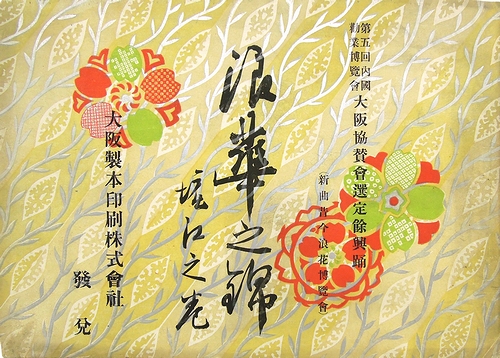 第五回內國
勸業博覽會
大阪協賛會選定餘興踊
新曲昔今浪花博覽會
浪華之錦
堀江之巻
大阪製本印刷株式會社
發兌